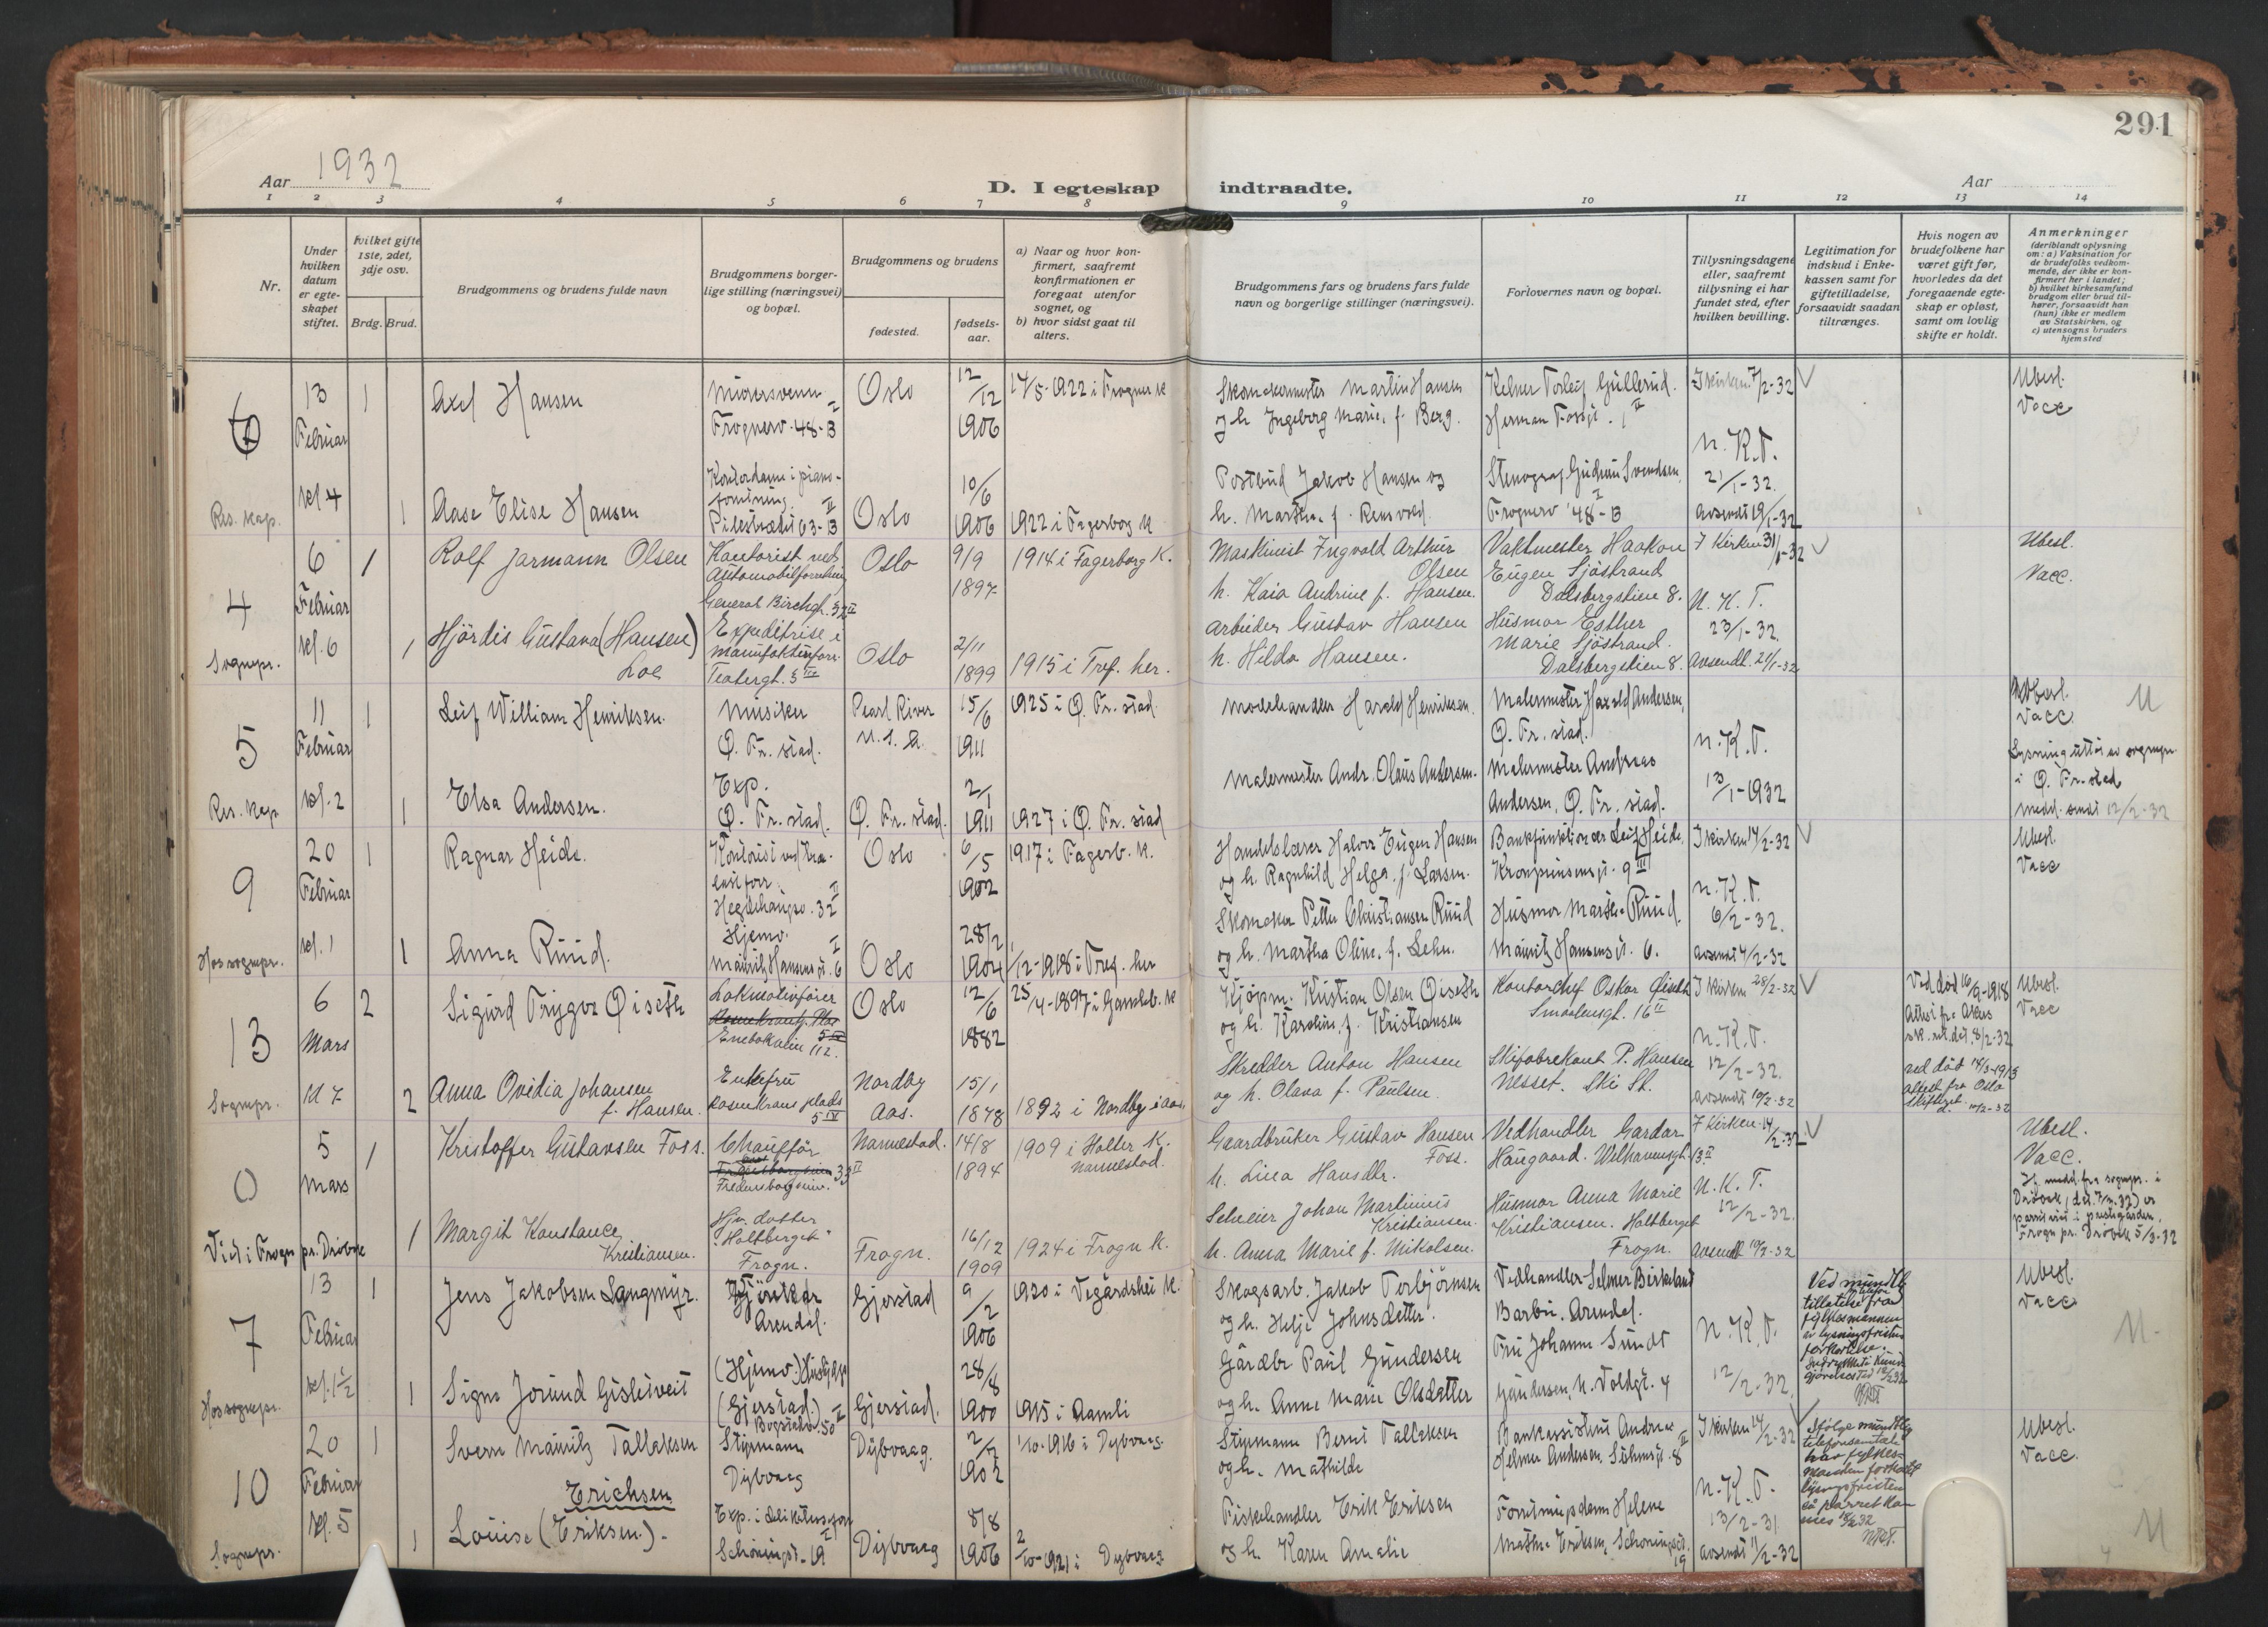 291
Aar 1932
D. I egteskap indtraadte.
Aar
1 2 3 4 5 6 7 8 9 10 11 12 13 14
Nr.
Under hvilken datum er egteskapet stiftet.
Hvilket gifte 1ste, 2det, 3dje osv.
Brdg. Brud.
Brudgommens og brudens fulde navn
Brudgommens borgerlige stilling (næringsvei) og bopæl.
Brudgommens og brudens
fødested.
fødselsaar.
a) Naar og hvor konfirmert, saafremt konfirmationen er foregaat utenfor sognet, og
b) hvor sidst gaat til alters.
Brudgommens fars og brudens fars fulde navn og borgerlige stillinger (næringsvei).
Forlovernes navn og bopæl.
Tillysningsdagene eller, saafremt tillysning ei har fundet sted, efter hvilken bevilling.
Legitimation for indskud i Enkekassen samt for giftetilladelse, forsaavidt saadan tiltrænges.
Hvis nogen av brudefolkene har været gift før, hvorledes da det foregaaende egteskap er opløst, samt om lovlig skifte er holdt.
Anmerkninger
(deriblandt oplysning om: a) Vaksination for de brudefolks vedkommende, der ikke er konfirmert her i landet; b) hvilket kirkesamfund brudgom eller brud tilhører, forsaavidt han (hun) ikke er medlem av Statskirken, og c) utensogns bruders hjemsted
6 13 Februar kl 4 Res. kap.
1 Axel Hansen Murersvenn Frognerv. 48-B I Oslo 12/12 1906 14/5-1922 i Frogner K
Skomakermester Martin Hansen og h. Ingeborg Marie, f. Berg.
Kelner Torleif Gullerud. Herman Fossgt. 1 II
I kirken 7/2-32
Ubesl. Vacc
1 Aase Elise Hansen Kontordame i Pilestrædet 63-B II Oslo 10/6 1906 1922 i Fagerborg K
Postbud Jakob Hansen og h. Martha f. Remvold.
Stenograf Gudrun Svendsen, Frognerv 48-B I
N. K. T. 21/1-32. avsendt 19/1-32
4 6 Februar kl. 6 Sognepr.
1 Rolf Jarmann Olsen Kontorist ved Automobilforretning General Birchgt. Oslo 9/9 1897 1914 i Fagerborg K.
Maskinist Ingvald Arthur Olsen h. Kaia Andrine f. Hansen.
Vaktmester Haakon Eugen Sjöstrand Dalsbergstien 8.
I Kirken 31/1-32
Ubesl. Vacc.
1 Hjördis Gustava (Hansen) Loe Expeditrise i manufakturforr. Teatergt. 5 Oslo 2/11 1899 1915 i Tref. her.
Arbeider Gustav Hansen h. Hilda Hansen.
Husmor Esther Marie Sjöstrand. Dalsbergstien 8.
N. K. T. 23/1-32. Avsendt. 21/1-32
5 11 Februar kl. 2 Res. kap
1 Leif William Henriksen. Musiker Ø. Fr. stad. Pearl River U.S.A. 15/6 1911 1925 i Ø. Fr. stad.
Motehandler Harald Henriksen.
Malermester Harald Andersen, Ø. Fr. stad.
Ubesl. Vacc. U
1 Elsa Andersen. Exp. Ø. Fr. stad. Ø. Fr. stad. 2/1 1911 1927 i Ø. Fr. stad
Malermester Andr. Olaus Andersen.
Malermester Andreas Andersen, Ø. Fr. stad.
N. K. T. 13/1-1932
Lysning utført av sognepr. i Ø. Fr. stad medd. sendt 12/2-32
9 20 Februar kl. 1 Hos sognepr.
1 Ragnar Heide. Kontorist ved Hegdehaugsv. 32 II Oslo 6/5 1902 1917 i Fagerb. K.
Handelslærer Halvor Eugen Hansen og h. Ragnhild Helga, f. Larsen.
Bankfunktionær Leif Heide, Kronprinsensgt. 9 III
I kirken 14/2-32
Ubesl. Vacc
1 Anna Ruud. Hjemv. Mauritz Hansens gt. 6 I Oslo 28/2 1904 1/12-1918 i Tref. her
Skomaker Petter Christiansen Ruud og h. Martha Oline, f. Lehn.
Husmor Martha Ruud. Mauritz Hansens gt. 6.
N. K. T. 6/2-32. avsendt 4/2-32
13 6 Mars kl 7 Sognepr.
2 Sigurd Trygve Øiseth Lokmotivfører Rosenkrantz Plas 5 IV Enebakvein 112. Oslo 12/6 1882 25/4-1897 i Gamleb. K
Kjöpm. Kristian Olsen Øiseth og h. Karoline, f. Kristiansen
Kontorchef Oskar Øiseth Smaalensgt. 16 II
I kirken 28/2-32
Ved död 16/9-1918 Attest fra Akers 8/2-32
Ubesl. Vacc
2 Anna Ovidia Johansen f. Hansen. Enkefru Rosenkrans plads 5 IV Nordby Aas. 15/1 1878 1892 i Nordby i Aas.
Skredder Anton Hansen og h. Olava f. Paulsen.
Skifabrekant P. Hansen Nesset. Ski St.
N. K. T. 12/2-32. avsendt 10/2-32
ved död 14/3-1913 attest fra Oslo skifteret d. 10/2-32
0 5 Mars Viet i Frogn pr. Dröbak
1 Kristoffer Gustavsen Foss. Chaufför Fredensborgveien 33 II Nannestad. 14/8 1894 1909 i Holter K. Nannestad.
Gaardbruker Gustav Hansen Foss. h. Lina Hansdtr.
Vedhandler Gardar Haugaard. Welhavensgt. 13 II
I Kirken 14/2-32.
Ubesl. Vacc.
Ifl medd. fra sognepr. i Dröbak, (dat. 7/3.32) er parret viet i prestegården, Frogn pr. Dröbak 5/3-32
1 Margit Konstance Kristiansen. Hjv. datter "Holtberget" Frogn. Frogn. 16/12 1909 1924 i Frogn K.
Johan Martinius Kristiansen. h. Anna Marie f. Mikalsen.
Husmor Anna Marie Kristiansen. Holtberget Frogn.
N. K. T. 12/2-32. Avsendt 10/2-32
7 13 Februar kl. 1 1/2 Hos sognepr.
1 Jens Jakobsen Langmyr. Arendal. Gjerstad 9/2 1906 1920 i Vegårdshei K.
Skogsarb. Jakob Torbjörnsen og h. Helje Johnsdatter.
Vedhandler Selmer Birkeland Barbu, Arendal.
Ved muntl. tillatelse fra fylkesmannen er lysningsfristen forkortet.
Ubesl. Vacc U.
1 Signe Jorund Gisleveit (Hjemv.) (Gjerstad.) Bogstadv. 50 II Gjerstad. 28/8 1900 1915 i Aamli
Gårdbr Paul Gundersen og h. Anne Marie Olsdatter
Fru Johanne Sundt Gundersen, N. Voldgt. 4
N. K. T. 12/2-32.
10 20 Februar kl. 5 Sognepr.
1 Sverre Mauritz Tallaksen Styrmann Dybvaag Dybvaag. 2/2 1902 1/10-1916 i Dybvaag.
Styrmann Bernt Tallaksen og h. Mathilde
Bankassistent Andreas Helmer Andersen, Söhusgt. 8 II
I kirken 14/2-32
Ifölge muntlig telefonsamtale har fylkesmannen forkortet lysningsfristen så parret kan vies 18/2 32
Ubesl. Vacc.
1 Louise (Eriksen). Erichsen Exp. i delikatesseforr Schöningsgt. 19 I Dybvaag 8/8 1906 2/10-1921 i Dybvaag
Fiskehandler Erik Eriksen og h. Karen Amalie
Helene Mathea Eriksen, Schöningsgt. 19
N. K. T. 13/2-31 avsendt 11/2-32
U